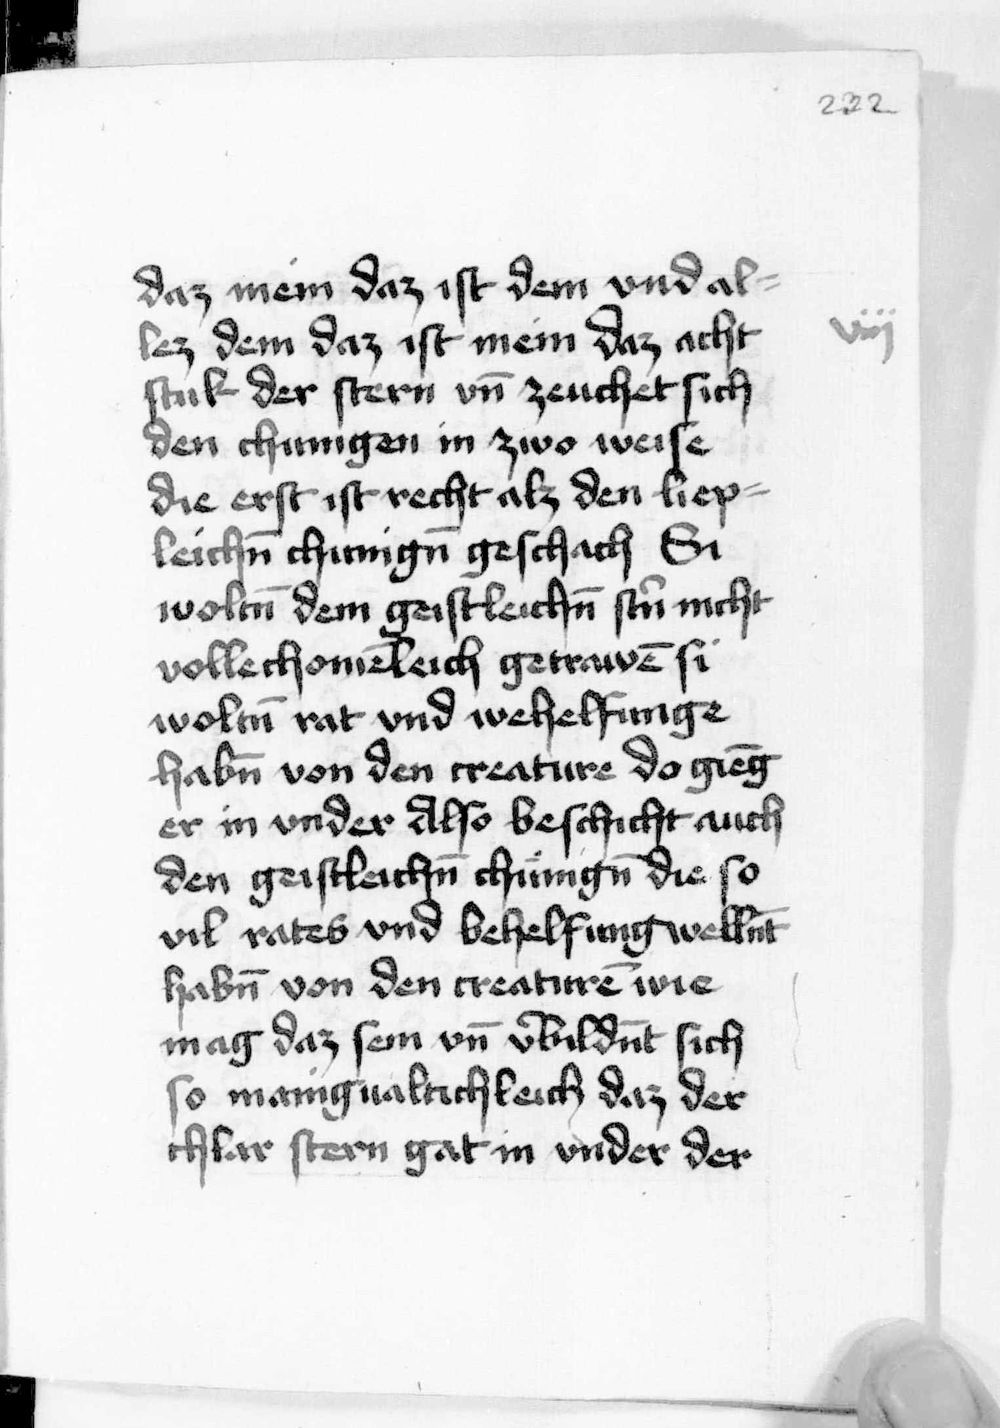 232
daz mein daz ist dein vnd al=
lez dein daz ist mein daz acht
viij
stuk der stern vn̄ zeuchet sich
den chunigen in zwo weise
die erst ist recht alz den liep=
leichn̄ chunign̄ geschach Si
woltn̄ dem geistleichn̄ stn̄ nicht
vollechomēleich getrawē si
woltn̄ rat vnd wehelfunge
habn̄ von den creature do gienḡ
er in vnder Also beschicht auch
den geistleichn̄ chünign̄ die so
vil rates vnd behelfung welln̄t
habn̄ von den creaturē wie
mag daz sein vn̄ v̄bildn̄t sich
so manigualtichleich daz der
chlar stern gat in vnder der